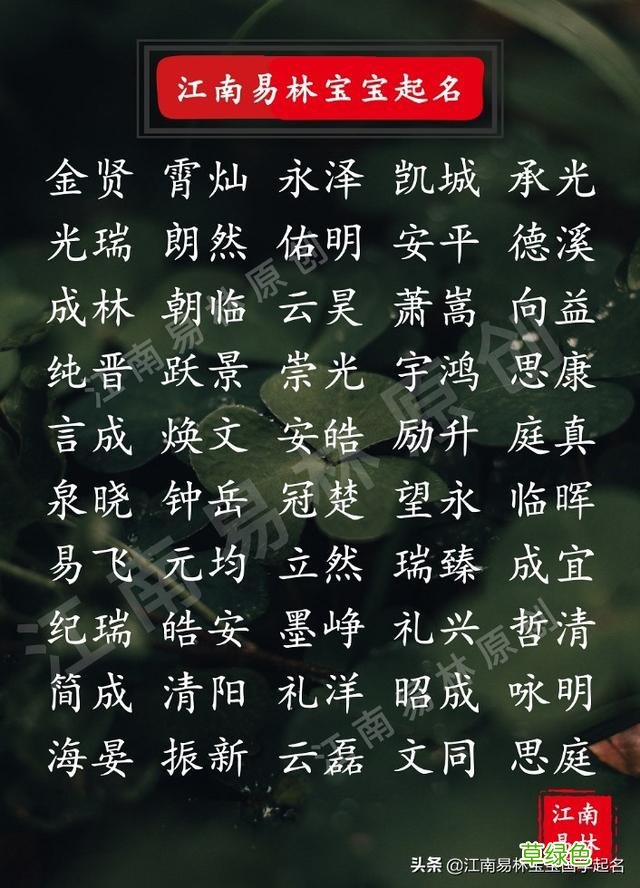 江南易林宝宝起名
金贤 霄灿 永泽 凯城 承光
光瑞 朗然 佑明 安平 德溪
成林 朝临 云昊 萧嵩 向益
纯晋 跃景 崇光 宇鸿 思康
言成 焕文 安皓 励升 庭真
泉晓 钟岳 冠楚 望永 临晖
易飞 元均 立然 瑞臻 成宜
纪瑞 皓安 墨峥 礼兴 哲清
简成 清阳 礼洋 昭成 咏明
海晏 振新 云磊 文同 思庭
江南易林原创
江南易林原创
江南易林原创
江南
易林
草绿色
头条 @江南易林宝宝国学起名